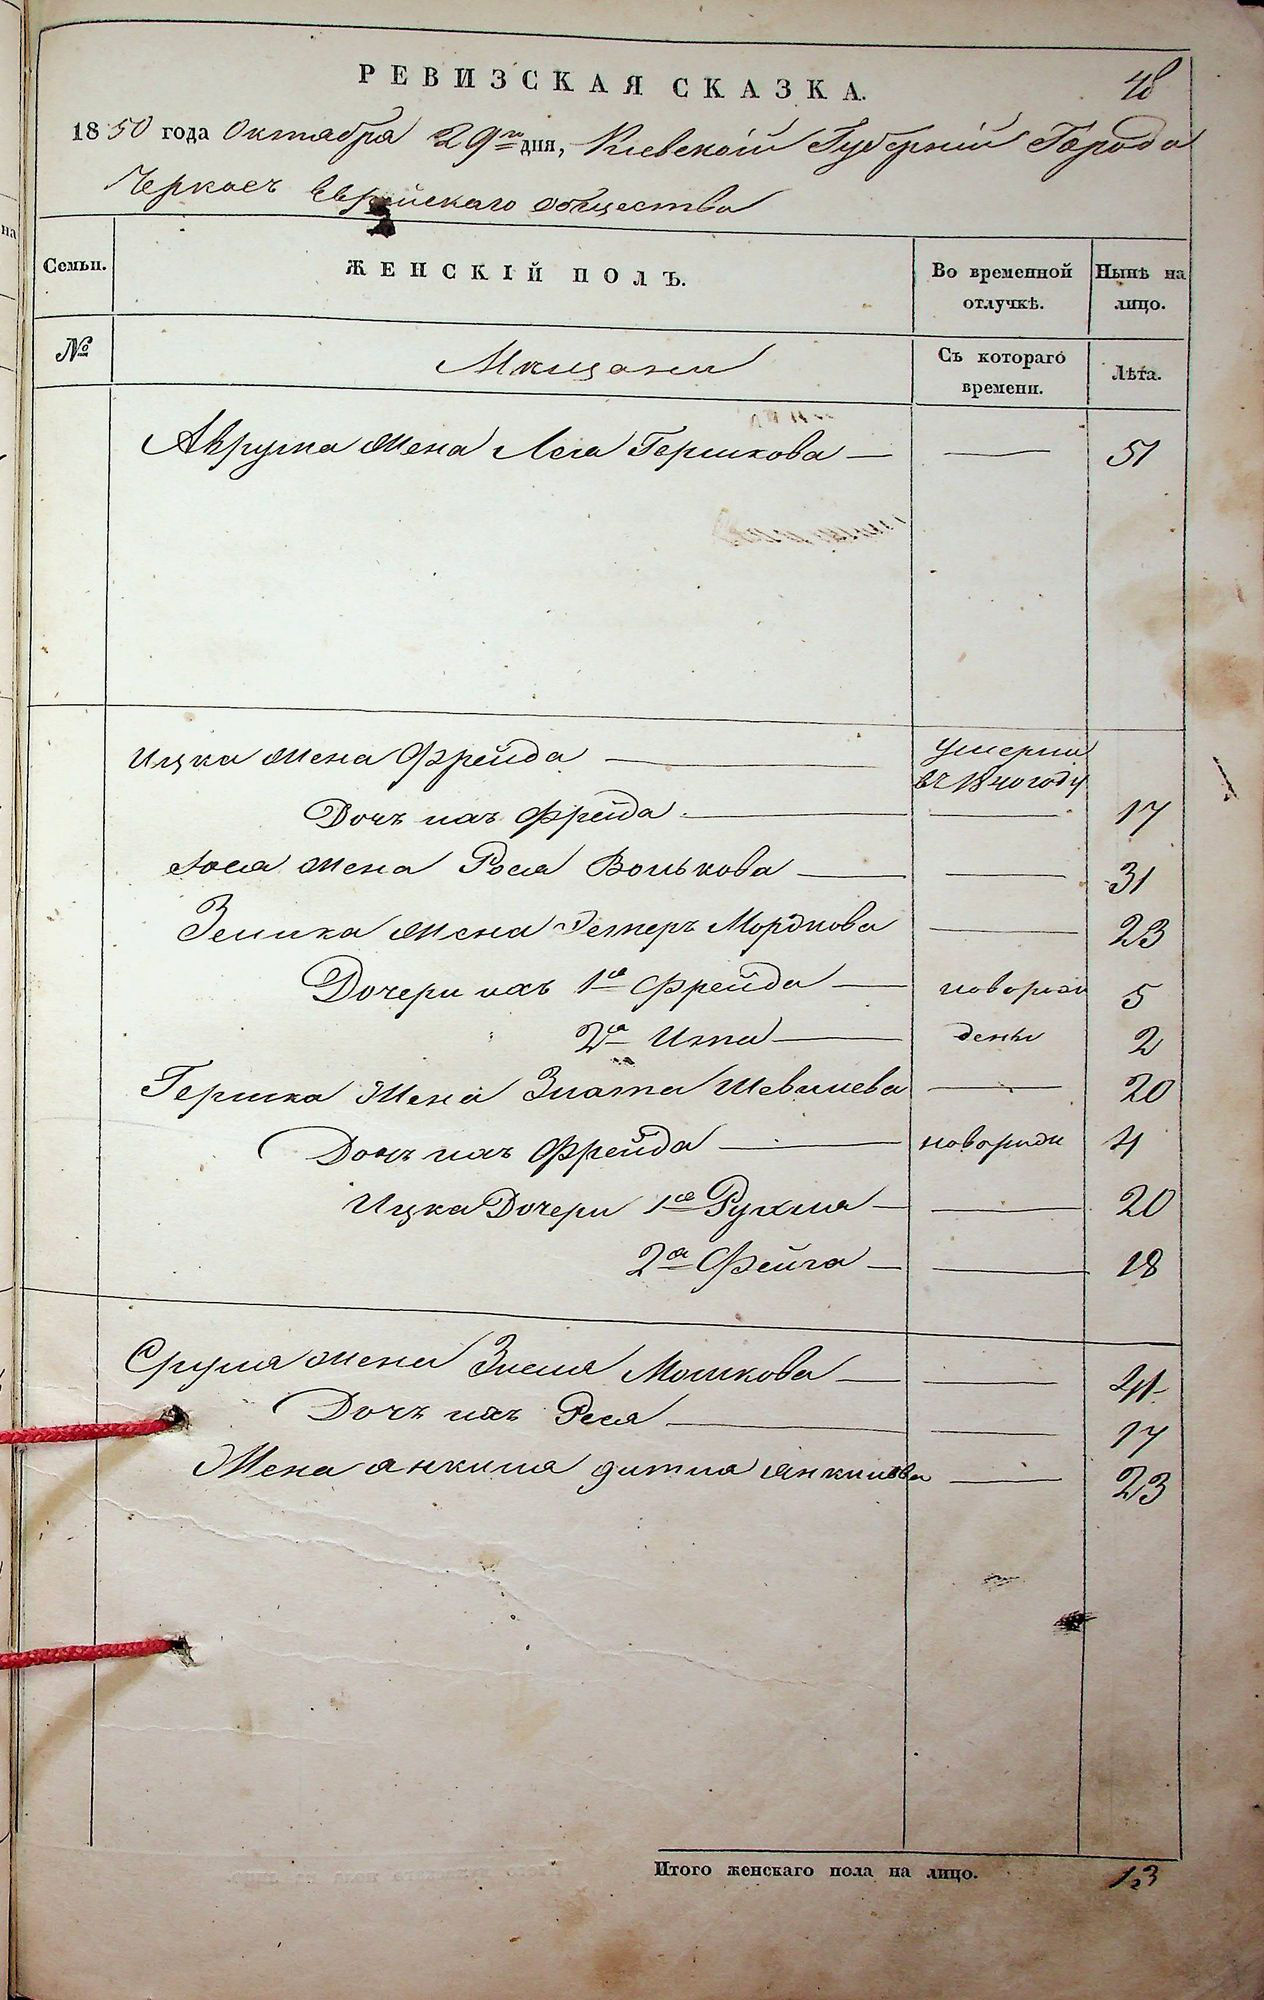 48
РЕВИЗСКАЯ СКАЗКА.
1850 года Октября 29го дня, Киевской Губерніи Города
Черкасъ Еврейскаго общества
Семьи.
ЖЕНСКІЙ ПОЛЪ.
Во временной отлучкѣ.
Нынѣ на лицо.
№
Мещани
Съ котораго времени.
Лѣта.
Аврума жена Лея Гершкова — — 51
Ицка жена Фрейда — умерли въ 1840 году
Дочъ ихъ Фрейда — — 17
Іося жена Рося Волькова — — 31
Зелика жена Эстеръ Мордкова — 23
Дочери ихъ 1я Фрейда — новорож 5
2я Ита — дены 2
Гершка Жена Злата Шевилева — 20
Дочъ ихъ Фрейда — новорожи 4
Ицка Дочери 1я Рухля — — 20
2я Фейга — — 18
Сруля жена Зисля Мошкова — — 41
Дочъ ихъ Рися — — 17
Жена Янкиля Янкилева — 23
Итого женскаго пола на лицо. 13